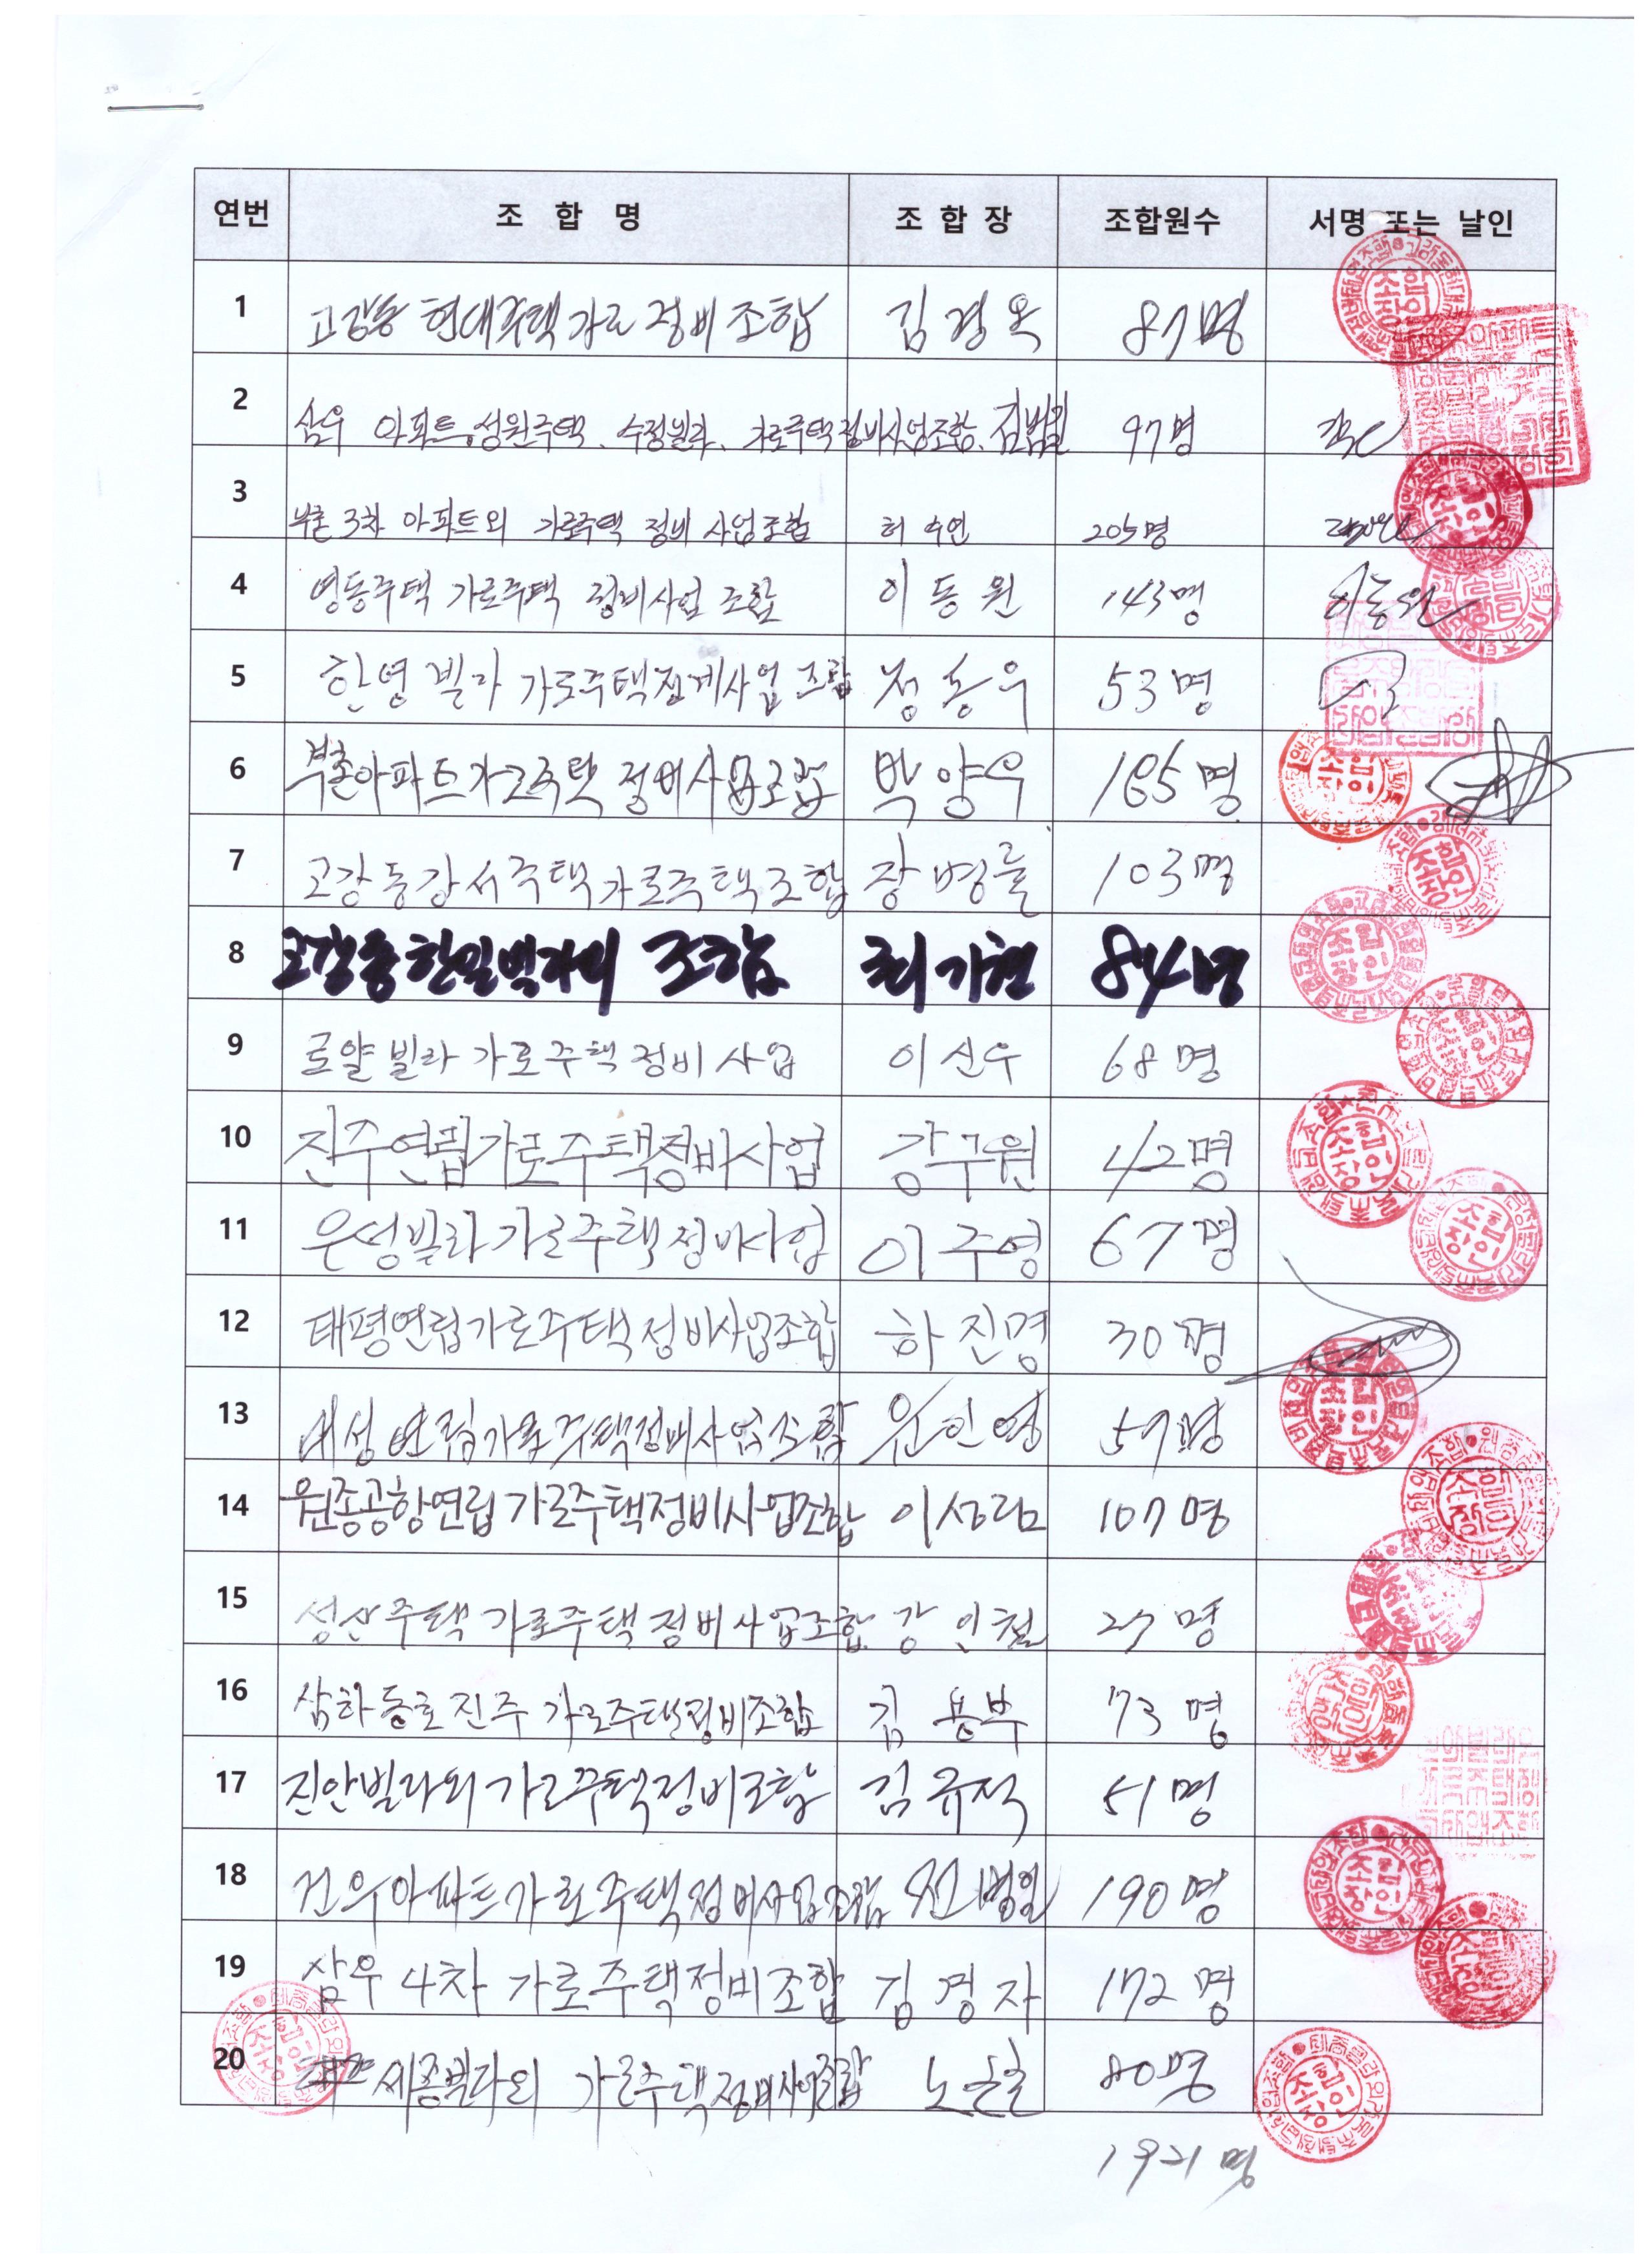 연번 조 합 명 조 합 장 조합원수 서명 또는 날인
1 고강동 현대주택 가로 정비 조합 김경옥 87명
2 삼우 아파트, 성원주택, 수정빌라, 가로주택정비사업조합, 김범진 97명
3 부촌 3차 아파트외 가로주택 정비 사업조합 허수연 205명
4 영동주택 가로주택 정비사업 조합 이동원 143명 이동원
5 한영빌라 가로주택정비사업 조합 정동우 53명
6 부촌아파트가로주택 정비사업조합 박양우 165명
7 고강동강서주택가로주택조합 장병률 103명
8 고강동한일빌라외 조합 최기현 84명
9 로얄빌라 가로주택정비사업 이신우 68명
10 진주연립가로주택정비사업 강구원 42명
11 은성빌라가로주택정비사업 이주영 67명
12 태평연립가로주택정비사업조합 하진명 30명
13 대성연립가로주택정비사업조합 원인영 57명
14 원종공항연립가로주택정비사업조합 이성림 107명
15 성산주택가로주택정비사업조합 강인철 27명
16 삼하동호진주 가로주택정비조합 김용부 73명
17 진안빌라외가로주택정비조합 김규적 51명
18 건우아파트가로주택정비사업조합 전병일 190명
19 삼우4차 가로주택정비조합 김경자 172명
20 세종빌라외 가로주택정비사업조합 80명
1921명